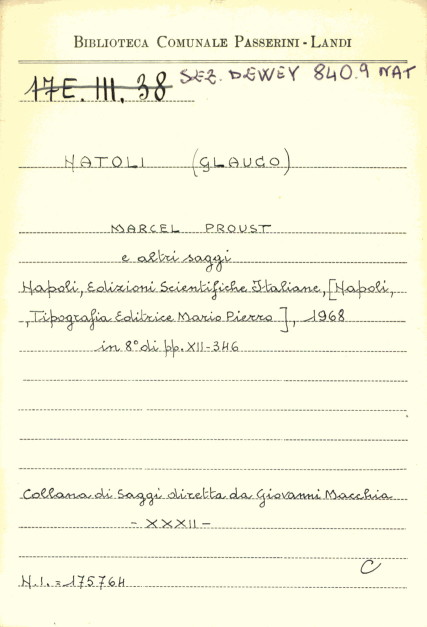 BIBLIOTECA COMUNALE PASSERINI-LANDI
17E. III. 38 SEZ. DEWEY 840.9 NAT
NATOLI (GLAUCO)
MARCEL PROUST
e altri saggi
Napoli, Edizioni Scientifiche Italiane, [Napoli,
, Tipografia Editrice Mario Pierro], 1968
in 8° di pp. XII-346
Collana di Saggi diretta da Giovanni Macchia
- XXXII -
C
N.I. = 175764